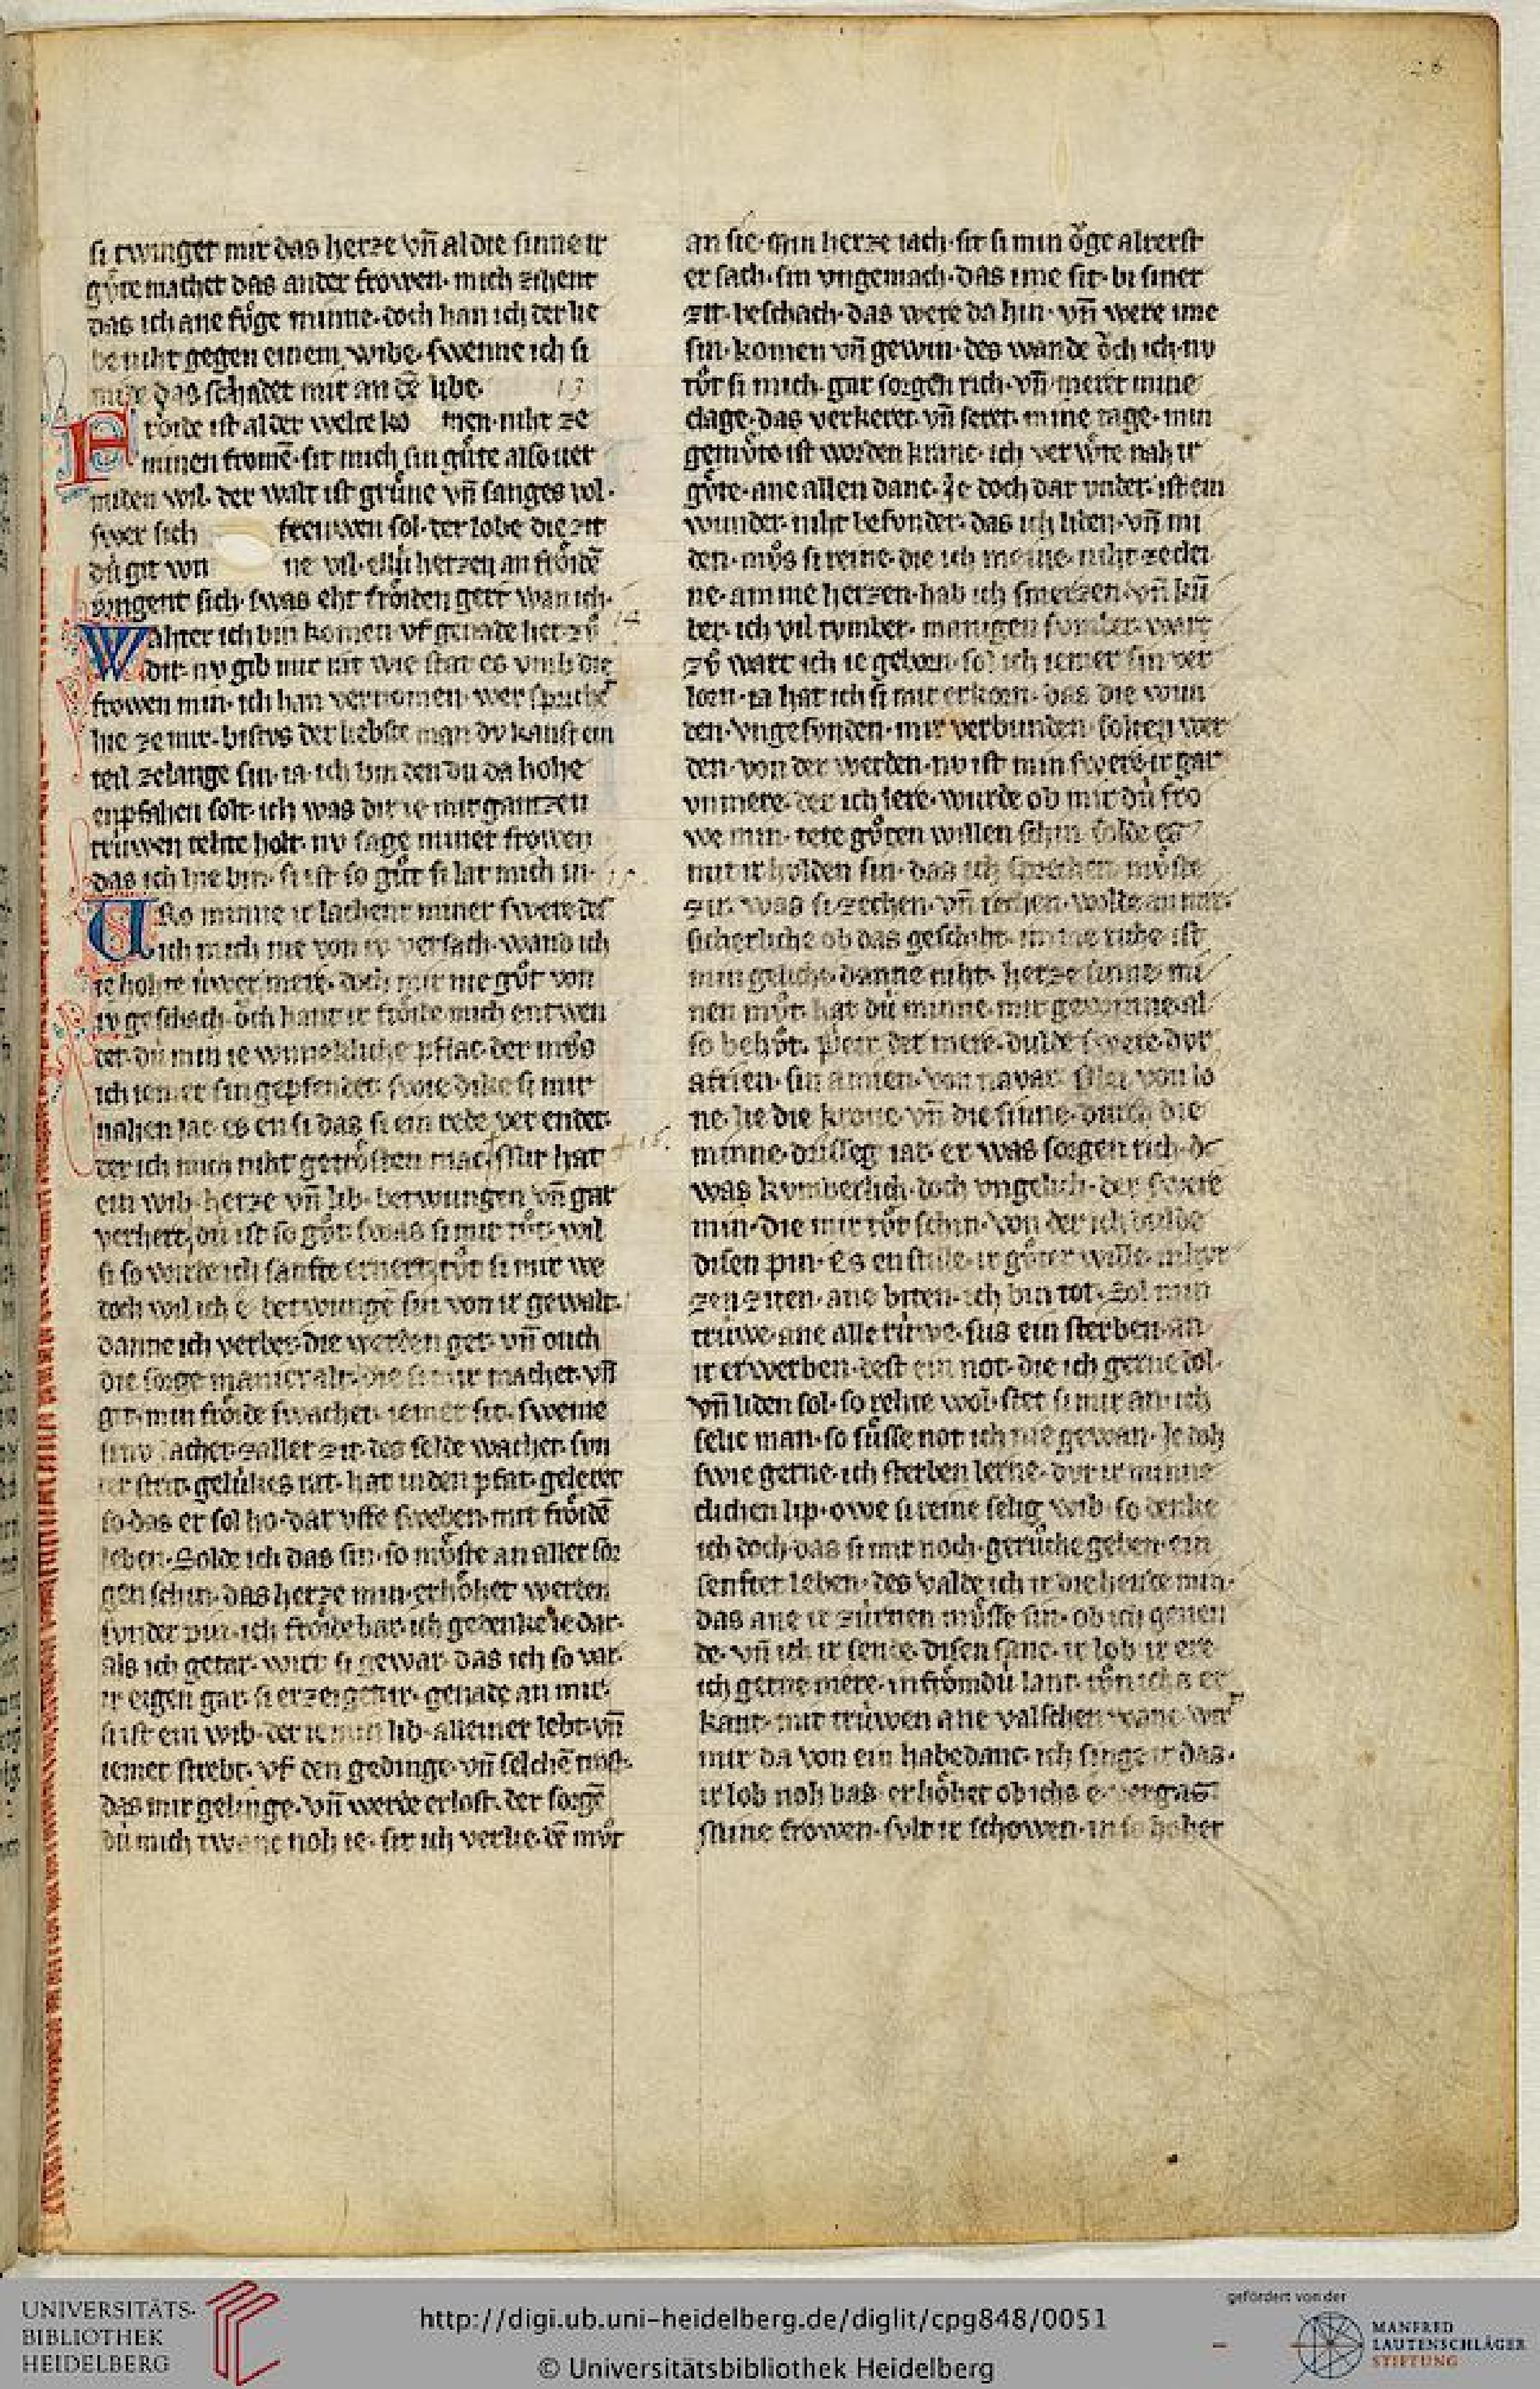 26
si twinget mir das herze vn̄ al die sinne ir
gůte machet das ander frowen· mich zihent
das ich ane fůge minne· doch han ich der lie
be niht gegen einem wibe· swenne ich si
mide das schadet mir an dē libe·
13
Froͤide ist al der welte ko men· niht ze
minen fromē· sit mich sin guͤte also ver
miden wil· der walt ist gruͤne vn̄ sanges vol·
swer sich freuwen sol· der lobe die zit
dú git wn ne vil· ellú herzen an froͤidē
ringent sich· swas eht froͤiden gert wan ich·
14
Wahter ich bin komen vf genade her zů
dir· nv gib mir rat wie stat es vmb die
frowen min· ich han vernomen· wer sprichꝫ
hie ze mir· bistvs der liebste man dv kanst ein
teil ze lange sin· ia ich bin den du da hohe
enpfahen solt· ich was dir ie mit gantzen
trúwen rehte holt· nv sage miner frowen
das ich hie bin· si ist so gůt si lat mich in·
15·
Uro minne ir lachent miner swere des
ich mich nie von iv versach· wand ich
ie horte úwer mere· doch mir nie gůt von
iv geschach· oͮch hant ir froͤide mich entwen
det· dú min ie wunnekliche pflac· der můs
ich iemer sin gepfendet· swie dike si mir
nahen lac· es en si das si ein rede verendet·
der ich mich niht getroͤsten mac· Mir hat
16·
ein wib· herze vn̄ lib· betwungen vn̄ gar
verhert· dú ist so gůt· swas si mir tůt· wil
si so wirde ich sanfte ernert· tůt si mir we
doch wil ich e· betwungē sin von ir gewalt·
danne ich verber· die werden ger· vn̄ ouch
die sorge manicvalt· die si mir machet· vn̄
git· min froͤide swachet· iemer sit· swenne
si nv lachet· zaller zit· des selde wachet· svn
der strit· gelúkes rat· hat in den pfat· geleret
so das er sol ho· dar vffe sweben· mit froͤidē
leben· Solde ich das sin· so můste an aller sor
gen schin· das herze min· erhoͤhet werden
svnder pin· ich froͤide bar· ich gedenke ie dar·
als ich getar· wirt si gewar· das ich so var·
ir eigen gar· si erzeiget ir· genade an mir·
si ist ein wib· der ie min lib· alleiner lebt· vn̄
iemer strebt· vf den gedinge· vn̄ selchē trost·
das mir gelinge· vn̄ werde erlost· der sorgē
dú mich twanc noh ie· sit ich verlie· dē můt
an sie· Min herze iach· sit si min oͮge alrerst
ersach· sin vngemach· das ime sit· bi siner
zit· beschach· das were da hin· vn̄ were ime
sin· komen vn̄ gewin· des wande oͮch ich· nv
tůt si mich· gar sorgen rich· vn̄ meret mine
clage· das verkeret· vn̄ seret· mine tage· min
gemůte ist worden kranc· ich verwůte nah ir
guͤte· ane allen danc· Je doch dar vnder· ist ein
wunder· niht besonder· das ich liden· vn̄ mi
den· můs si reine· die ich meine· niht ze clei
ne· am me herzen· hab ich smerzen· vn̄ kū
ber· ich vil tvmber· manigen svmber· war
zů wart ich ie geborn· sol ich iemer sin ver
lorn· ia hat ich si mir erkorn· das die wun
den· vngesvnden· mir verbunden· solten wer
den· von der werden· nv ist min swere· ir gar
vnmere· der ich iere· wurde ob mir dú fro
we min· tete gůten willen schin· solde es
mit ir hulden sin· das ich sprechen můste
zir· was si zechen· vn̄ rechen· wolte an mir·
sicherliche ob das geschiht· in me riche ist
min geliche· danne niht· herze sinne mi
nen můt· hat dú minne· mir gewinne· al
so behůt· Pietr dit mere· dulde swere· dvr
afrien· sin amien· von navar· von lo
ne· lie die krone· vn̄ die sinne· durch die
minne· drisseg iar· er was sorgen rich· dc
was kvmberlich· doch vngelich· der swere
min· die mir tůt schin· von der ich dulde
disen pin· Es en stille· ir gůter wille· in kvr
zen ziten· ane biten· ich bin tot· Sol min
trúwe· ane alle rúwe· sus ein sterben· an
ir erwerben· dest ein not· die ich gerne dol·
vn̄ liden sol· so rehte wol· stet si mir an· ich
selic man· so suͤsse not ich nie gewan· Je doh
swie gerne· ich sterben lerne· dvr ir minne
clichen lip· owe si reine selig wib· so denke
ich doch· das si mir noch· gerůche geben· ein
senfter leben· des valde ich ir die hende min·
das ane ir zúrnen můsse sin· ob ich genen
de· vn̄ ich ir sende· disen sanc· ir lob ir ere
ich gerne mere· in froͤmdú lant· tůn ichs er
kant· mit trúwen ane valschen wanc· wirt
mir da von ein habedanc· ich singe ir das·
ir lob noh bas· erhoͤhet ob ichs e vergas·
Mine frowen· svlt ir schowen· in so hoher
UNIVERSITÄTS-
BIBLIOTHEK
HEIDELBERG
http://digi.ub.uni-heidelberg.de/diglit/cpg848/0051
© Universitätsbibliothek Heidelberg
gefördert von der
MANFRED
LAUTENSCHLÄGER
STIFTUNG